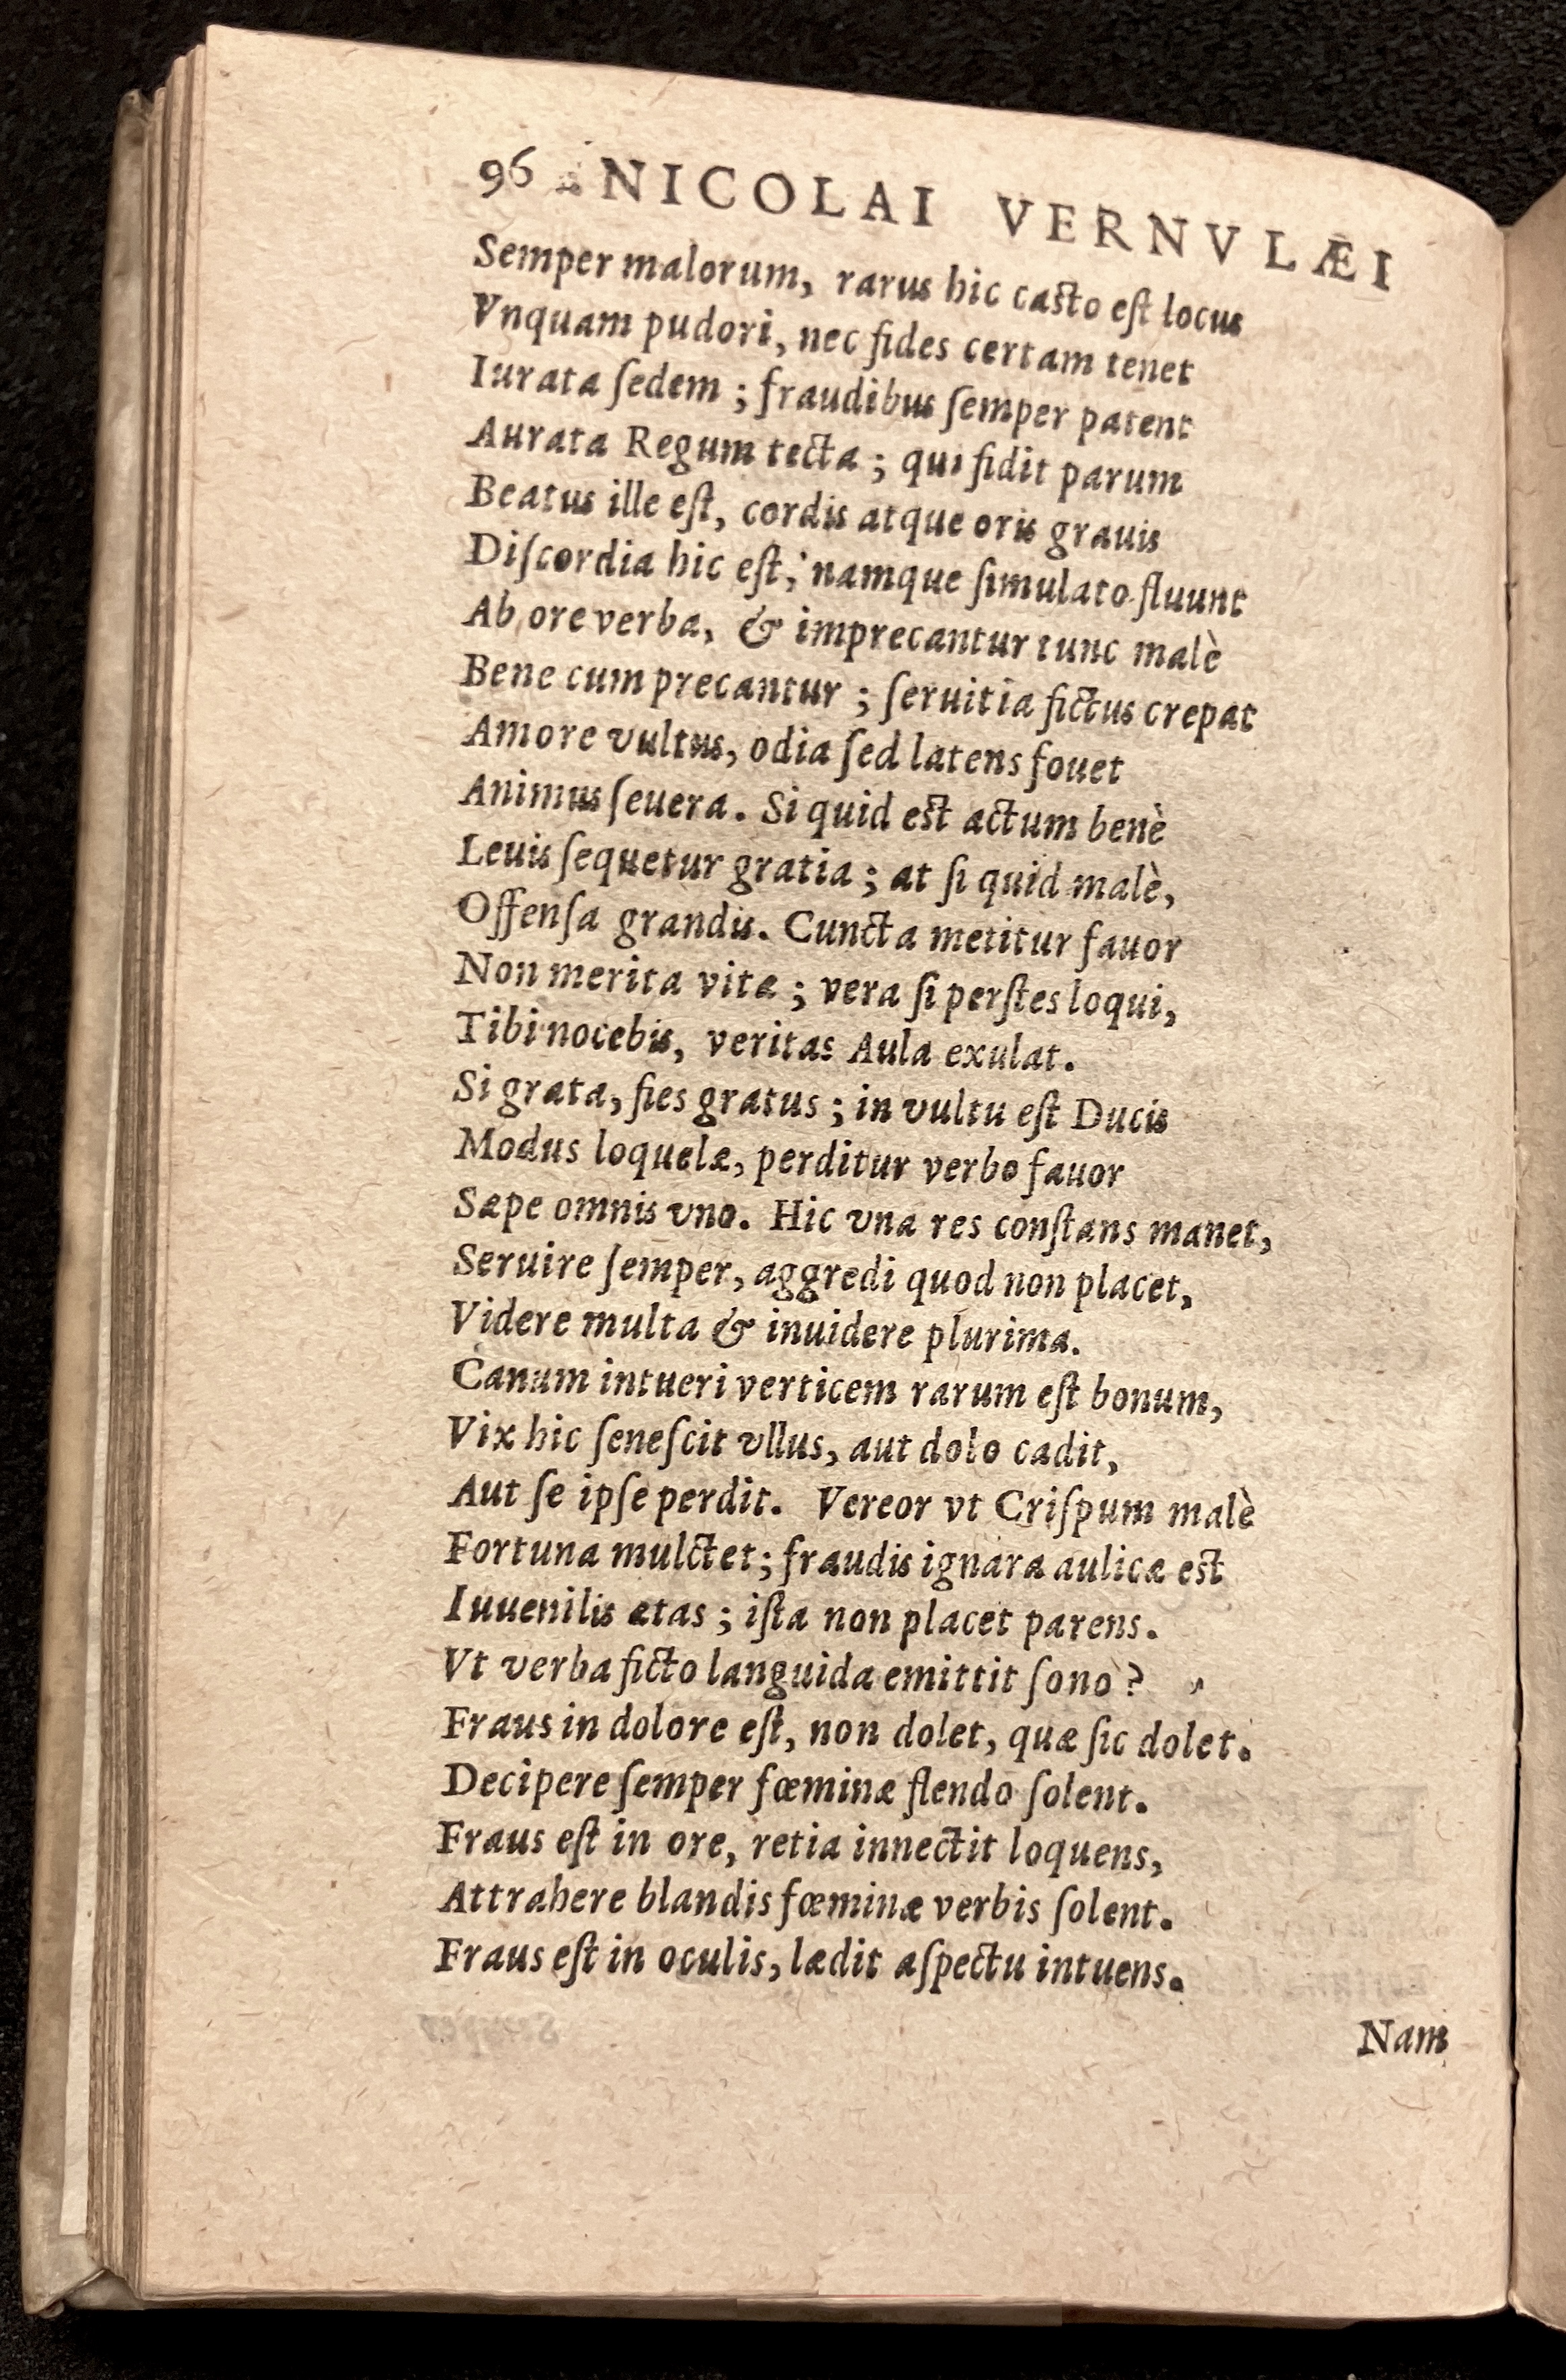 96 NICOLAI VERNVLÆI
Semper malorum, rarus hic casto eſt locus
Vnquam pudori, nec fides certam tenet
Iurata ſedem ; fraudibus ſemper patent
Aurata Regum tecta ; qui fidit parum
Beatus ille eſt, cordis atque oris grauis
Diſcordia hic eſt, namque ſimulato fluunt
Ab ore verba, & imprecantur tunc malè
Bene cum precantur ; ſeruitia fictus crepat
Amore vultus, odia ſed latens fouet
Animus ſeuera. Si quid est actum benè
Leuis ſequetur gratia ; at ſi quid malè,
Offenſa grandis. Cuncta metitur fauor
Non merita vitæ ; vera ſi perſtes loqui,
Tibi nocebis, veritas Aula exulat.
Si grata, fies gratus ; in vultu eſt Ducis
Modus loquelæ, perditur verbo fauor
Sæpe omnis vno. Hic vna res conſtans manet,
Seruire ſemper, aggredi quod non placet,
Videre multa & inuidere plurima.
Canum intueri verticem rarum eſt bonum,
Vix hic ſeneſcit vllus, aut dolo cadit,
Aut ſe ipſe perdit. Vereor vt Criſpum malè
Fortuna mulctet; fraudis ignara aulicæ est
Iuuenilis ætas ; iſta non placet parens.
Vt verba ficto languida emittit ſono ?
Fraus in dolore eſt, non dolet, quæ ſic dolet.
Decipere ſemper fœminæ flendo ſolent.
Fraus eſt in ore, retia innectit loquens,
Attrahere blandis fœminæ verbis ſolent.
Fraus eſt in oculis, lædit aſpectu intuens.
Nam